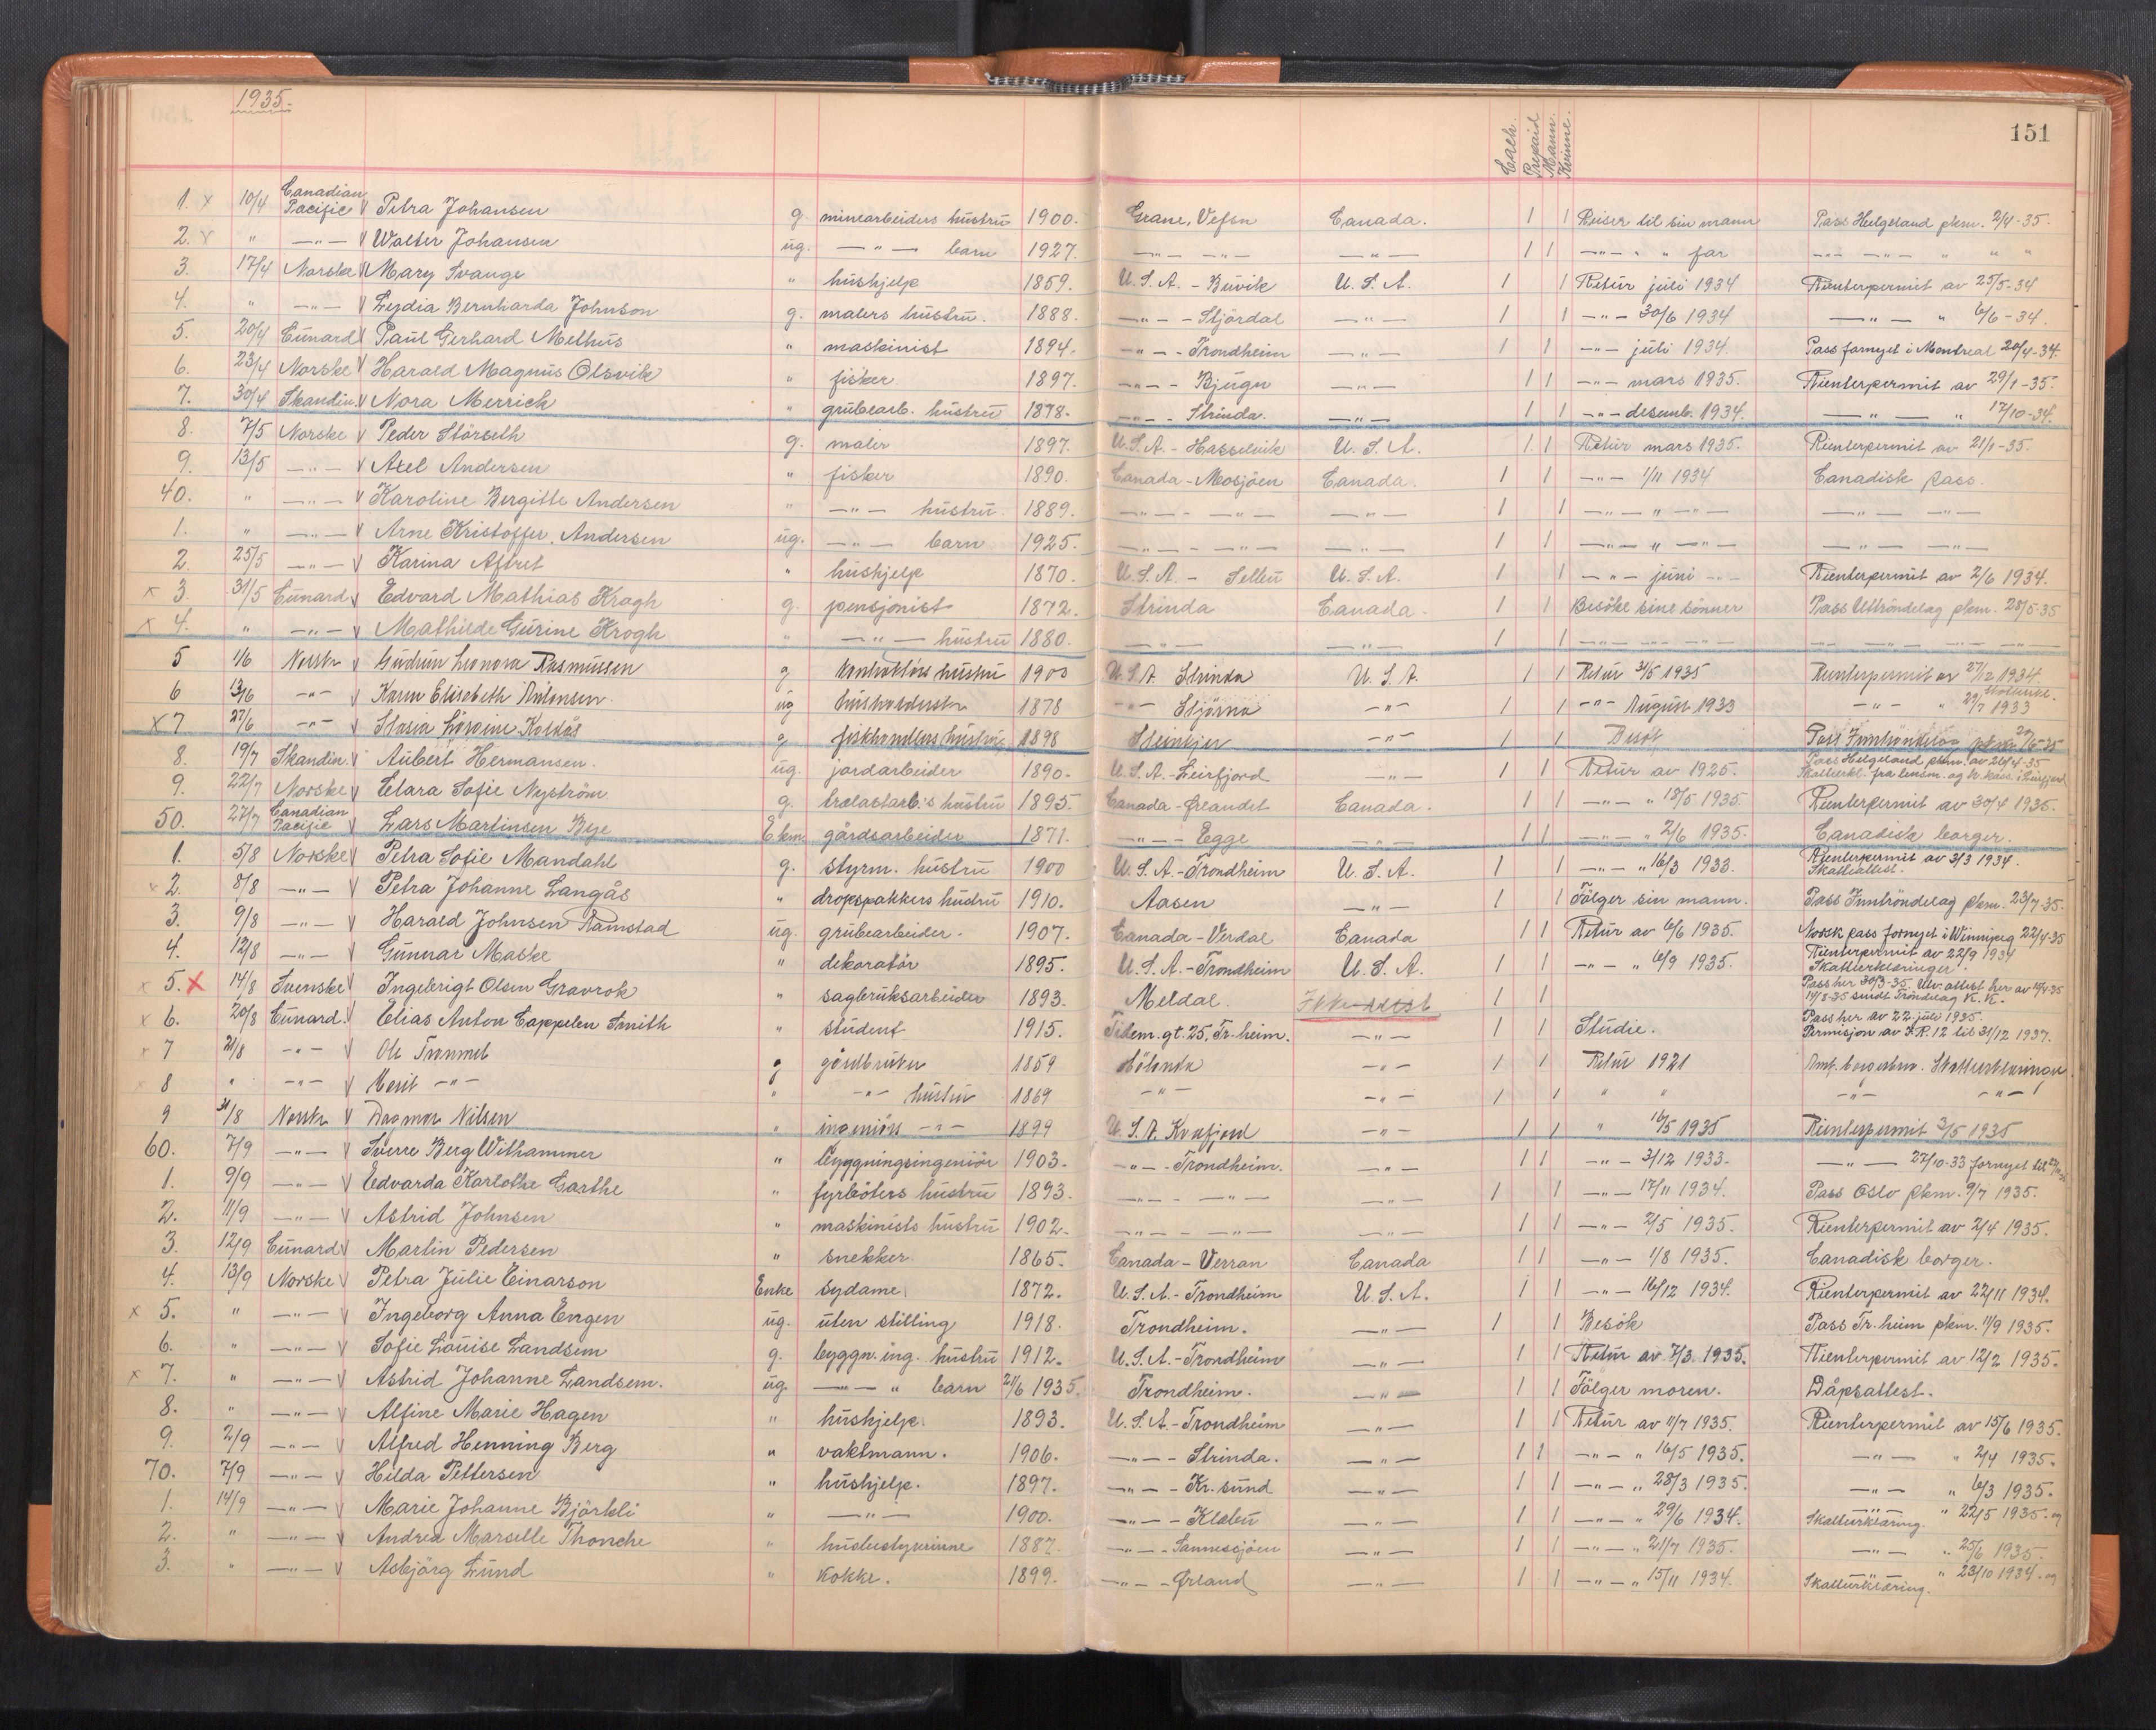 1935.
151
Cash. Prepaid Mann. Kvinne.
1. x 10/4 Canadian Pacific V Petra Johansen g. minearbeiders hustru 1900. Grane, Vefsn Canada. 1 1 Reiser til sin mann Pass Helgeland pkm. 2/4-35.
2. x " —"— V Walter Johansen ug. —"— barn 1927. —"— —"— —"— 1 1 —"— " " far —"— —"— " " "
3. 17/4 Norske V Mary Svange " hushjelp 1859. U.S.A. - Buvik U.S.A. 1 1 Retur juli 1934 Rienterpermit av 25/5-34
4. " —"— V Lydia Bernharda Johnson g. malers hustru. 1888. —"— - Stjördal —"— 1 1 —"— 30/6 1934 —"— " 6/6-34.
5. 20/4 Cunard V Paul Gerhard Melhus " maskinist 1894. —"— - Trondheim —"— 1 1 —"— juli 1934. Pass fornyet i Montreal 20/4-34.
6. 23/4 Norske V Harald Magnus Olsvik " fisker. 1897. —"— - Bjugn —"— 1 1 —"— mars 1935. Rienterpermit av 29/1-35.
7. 30/4 Skandin. V Nora Merrick " grubearb. hustru 1878. —"— - Strinda. —"— 1 1 —"— desemb. 1934. —"— " 17/10-34.
8. 7/5 Norske V Peder Störseth g. maler 1897. U.S.A. - Hasselvik U.S.A. 1 1 Retur mars 1935. Rienterpermit av 21/1-35.
9. 13/5 —"— V Axel Andersen " fisker 1890. Canada - Mosjöen Canada. 1 1 —"— 1/11 1934 Canadisk pass.
40. " —"— V Karoline Bergitte Andersen " —"— hustru. 1889. —"— - —"— —"— 1 1 —"— " —"— —"— —"—
1. " —"— V Arne Kristoffer Andersen ug. —"— barn 1925. —"— - —"— —"— 1 1 —"— " —"— —"— —"—
2. 25/5 —"— V Karina Aftret " hushjelp 1870. U.S.A. - Selbu U.S.A. 1 1 —"— juni —"— Rienterpermit av 2/6 1934.
x 3. 31/5 Cunard V Edvard Mathias Krogh g. pensjonist 1872. Strinda Canada. 1 1 Besöke sine sönner Pass Uttröndelag pkm. 28/5-35
x 4. " —"— V Mathilde Gurine Krogh " —"— hustru 1880. —"— —"— 1 1 —"— —"— —"— —"— —"— —"— —"—
5 1/6 Norske V Gudrun Leonora Rasmussen g kontraktörs hustru 1900 U.S.A. Strinda U.S.A. 1 1 Retur 31/5 1935 Rienterpermit av 27/12 1934
6 13/6 —"— V Karen Elisabeth Antonsen ug husholderske 1878 —"— Stjörna —"— 1 1 —"— August 1933 —"— " 29/7 1933
x 7 27/6 —"— V Lovine Kolkås g fiskhandlers hustru 1898 Steinkjer —"— 1 1 Besök Pass Inntröndelag pkm. 24/6-35
8. 19/7 Skandin. V Aubert Hermansen. ug. jordarbeider 1890. U.S.A. - Leirfjord —"— 1 1 Retur av 1925. Pass Helgeland pkm. av 26/4-35
Skatterkl. fra lensm. og hr. kass. i Leirfjord
9. 22/7 Norske V Clara Sofie Nyström g. trelastarb.'s hustru 1895. Canada - Ørlandet Canada. 1 1 —"— " 18/5 1935. Rienterpermit av 30/4 1935.
50. 27/7 Canadian Pacific V Lars Martinsen Bye Ekm. gårdsarbeider 1871. —"— - Egge —"— 1 1 —"— " 2/6 1935. Canadisk borger.
1. 5/8 Norske V Petra Sofie Mandahl g. styrm. hustru 1900 U.S.A. - Trondheim U.S.A. 1 1 —"— " 16/3 1933. Rienterpermit av 3/3 1934.
Skatteattest.
x 2. 8/8 —"— V Petra Johanne Langås " dropspakkers hustru 1910. Aasen —"— 1 1 Fölger sin mann. Pass Inntröndelag pkm. 23/7-35.
3. 9/8 —"— V Harald Johnsen Ramstad ug. grubearbeider. 1907. Canada - Verdal Canada 1 1 Retur av 6/6 1935. Norsk pass fornyet i Winnipeg 22/4-35
4. 12/8 —"— V Gunnar Maske " dekoratör 1895. U.S.A. - Trondheim U.S.A. 1 1 —"— " 6/9 1935. Rienterpermit av 22/9 1934
Skatteerklæringer.
x 5. x 14/8 Svenske V Ingebrigt Olsen Gravrok " sagbruksarbeider 1893. Meldal. Ikke reist 1 1 Pass her 30/3-35. Utv. attest her av 10/4-35
14/8-35 sendt Tröndelag K.K.
x 6. 20/8 Cunard. V Elias Anton Cappelen Smith " student 1915. Tidem. gt. 25, Tr.heim. —"— 1 1 Studie. Pass her av 22. juli 1935.
Permisjon av I.R. 12 til 31/12 1937.
x 7 21/8 —"— V Ole Trommet g gårdbruker 1859 Hölonda —"— 1 1 Retur 1921 Amk. borgerbrev. Skatteerklæringer
x 8 " —"— V Marit —"— " —"— hustru 1869 —"— —"— 1 1 " " —"— —"—
9 31/8 Norske V Dagmar Nilsen " ingeniörs —"— 1899 U.S.A. Kvæfjord —"— 1 1 " 16/5 1935 Rienterpermit 3/5 1935
60. 7/9 —"— V Sverre Berg Withammer " bygningsingeniör 1903. —"— - Trondheim. —"— 1 1 —"— 3/12 1933. —"— 27/10-33 fornyet til
1. 9/9 —"— V Edvarda Karlotte Garthe " fyrböters hustru 1893. —"— - —"— —"— 1 1 —"— 17/11 1934. Pass Oslo pkm. 9/7 1935.
2. 11/9 —"— V Astrid Johnsen " maskinists hustru 1902. —"— - —"— —"— 1 1 —"— 2/5 1935. Rienterpermit av 2/4 1935.
3. 12/9 Cunard V Martin Pedersen " snekker. 1865. Canada - Verran Canada 1 1 —"— 1/8 1935. Canadisk borger.
4. 13/9 Norske V Petra Julie Einarson Enke sydame. 1872. U.S.A. - Trondheim U.S.A. 1 1 —"— 16/12 1934. Rienterpermit av 22/11 1934.
x 5. " —"— V Ingeborg Anna Engen ug. uten stilling 1918. Trondheim. —"— 1 1 Besök Pass Tr.heim pkm. 11/9 1935.
6. " —"— V Sofie Louise Landsem g. byggn. ing. hustru 1912. U.S.A. - Trondheim —"— 1 1 Retur av 7/3 1935. Rienterpermit av 12/2 1935.
x 7. " —"— V Astrid Johanne Landsem. ug. —"— " barn 21/6 1935. Trondheim. —"— 1 1 Fölger moren. Dåpsattest.
8. " —"— V Alfine Marie Hagen " hushjelp. 1893. U.S.A. - Trondheim —"— 1 1 Retur av 11/7 1935. Rienterpermit av 15/6 1935.
9. 2/9 —"— V Alfred Henning Berg " vaktmann. 1906. —"— - Strinda. —"— 1 1 —"— " 16/5 1935. —"— " 2/4 1935.
70. 7/9 —"— V Hilda Pettersen " hushjelp. 1897. —"— - Kr.sund —"— 1 1 —"— " 28/3 1935. —"— " 6/3 1935.
1. 14/9 —"— V Marie Johanne Björkli " —"— 1900. —"— - Klæbu —"— 1 1 —"— " 29/6 1934. —"— " 22/5 1935. og
Skatteerklæring.
2. " —"— V Andrea Marselle Thonche " husbestyrerinne 1887. —"— - Sannesjöen —"— 1 1 —"— " 21/7 1935. —"— " 25/6 1935.
3. " —"— V Asbjörg Lund " kokke. 1899. —"— - Ørland —"— 1 1 —"— " 15/11 1934. —"— " 23/10 1934. og
Skatteerklæring.